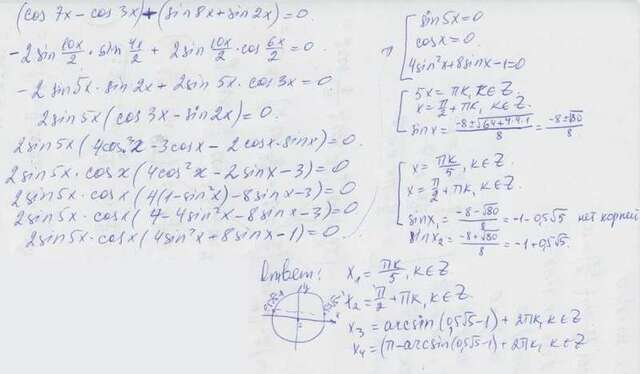 (cos 7x - cos 3x) + (sin 8x + sin 2x) = 0.
-2 sin 10x/2 · sin 4x/2 + 2 sin 10x/2 · cos 6x/2 = 0.
-2 sin 5x · sin 2x + 2 sin 5x · cos 3x = 0.
2 sin 5x (cos 3x - sin 2x) = 0.
2 sin 5x (4cos³x - 3cosx - 2cosx·sinx) = 0.
2 sin 5x · cosx (4cos²x - 2sinx - 3) = 0
2 sin 5x · cosx (4(1 - sin²x) - 8sinx - 3) = 0
2 sin 5x · cosx (4 - 4sin²x - 8sinx - 3) = 0.
2 sin 5x · cosx (4sin²x + 8sinx - 1) = 0.
sin 5x = 0
cosx = 0
4sin²x + 8sinx - 1 = 0
5x = πk, k∈Z.
x = π/2 + πk, k∈Z.
sinx = (-8 ± √(64+4·4·1))/8 = (-8 ± √80)/8
x = πk/5, k∈Z.
x = π/2 + πk, k∈Z.
sinx₁ = (-8 - √80)/8 = -1 - 0,5√5 нет корней
sinx₂ = (-8 + √80)/8 = -1 + 0,5√5.
Ответ: x₁ = πk/5, k∈Z
x₂ = π/2 + πk, k∈Z.
x₃ = arcsin (0,5√5 - 1) + 2πk, k∈Z
x₄ = (π - arcsin (0,5√5 - 1) + 2πk, k∈Z